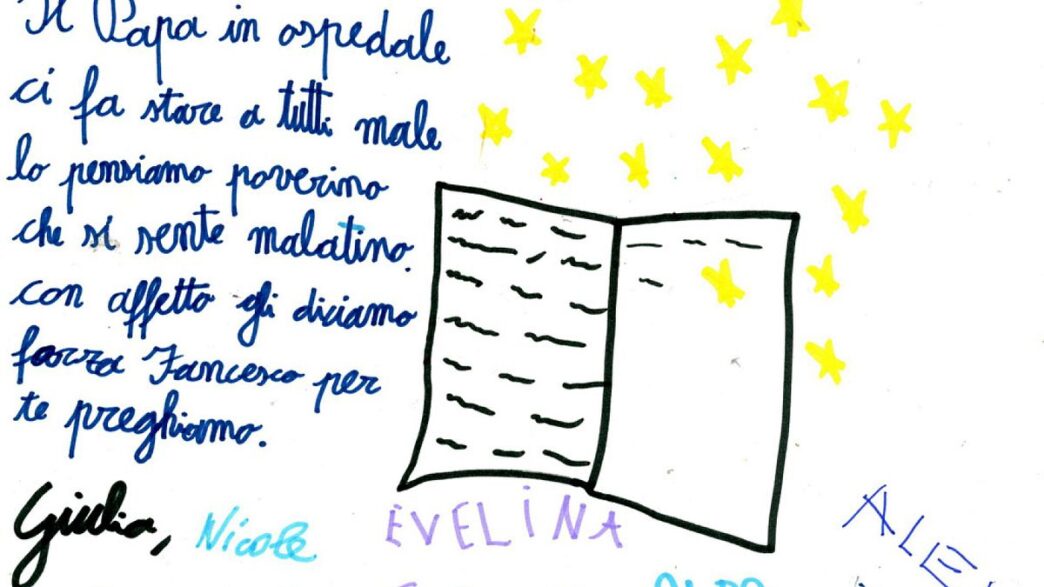 Il Papa in ospedale
ci fa stare a tutti male
lo pensiamo poverino
che si sente malatino.
con affetto gli diciamo
forza Fancesco per
te preghiamo.
Giulia, Nicole EVELINA